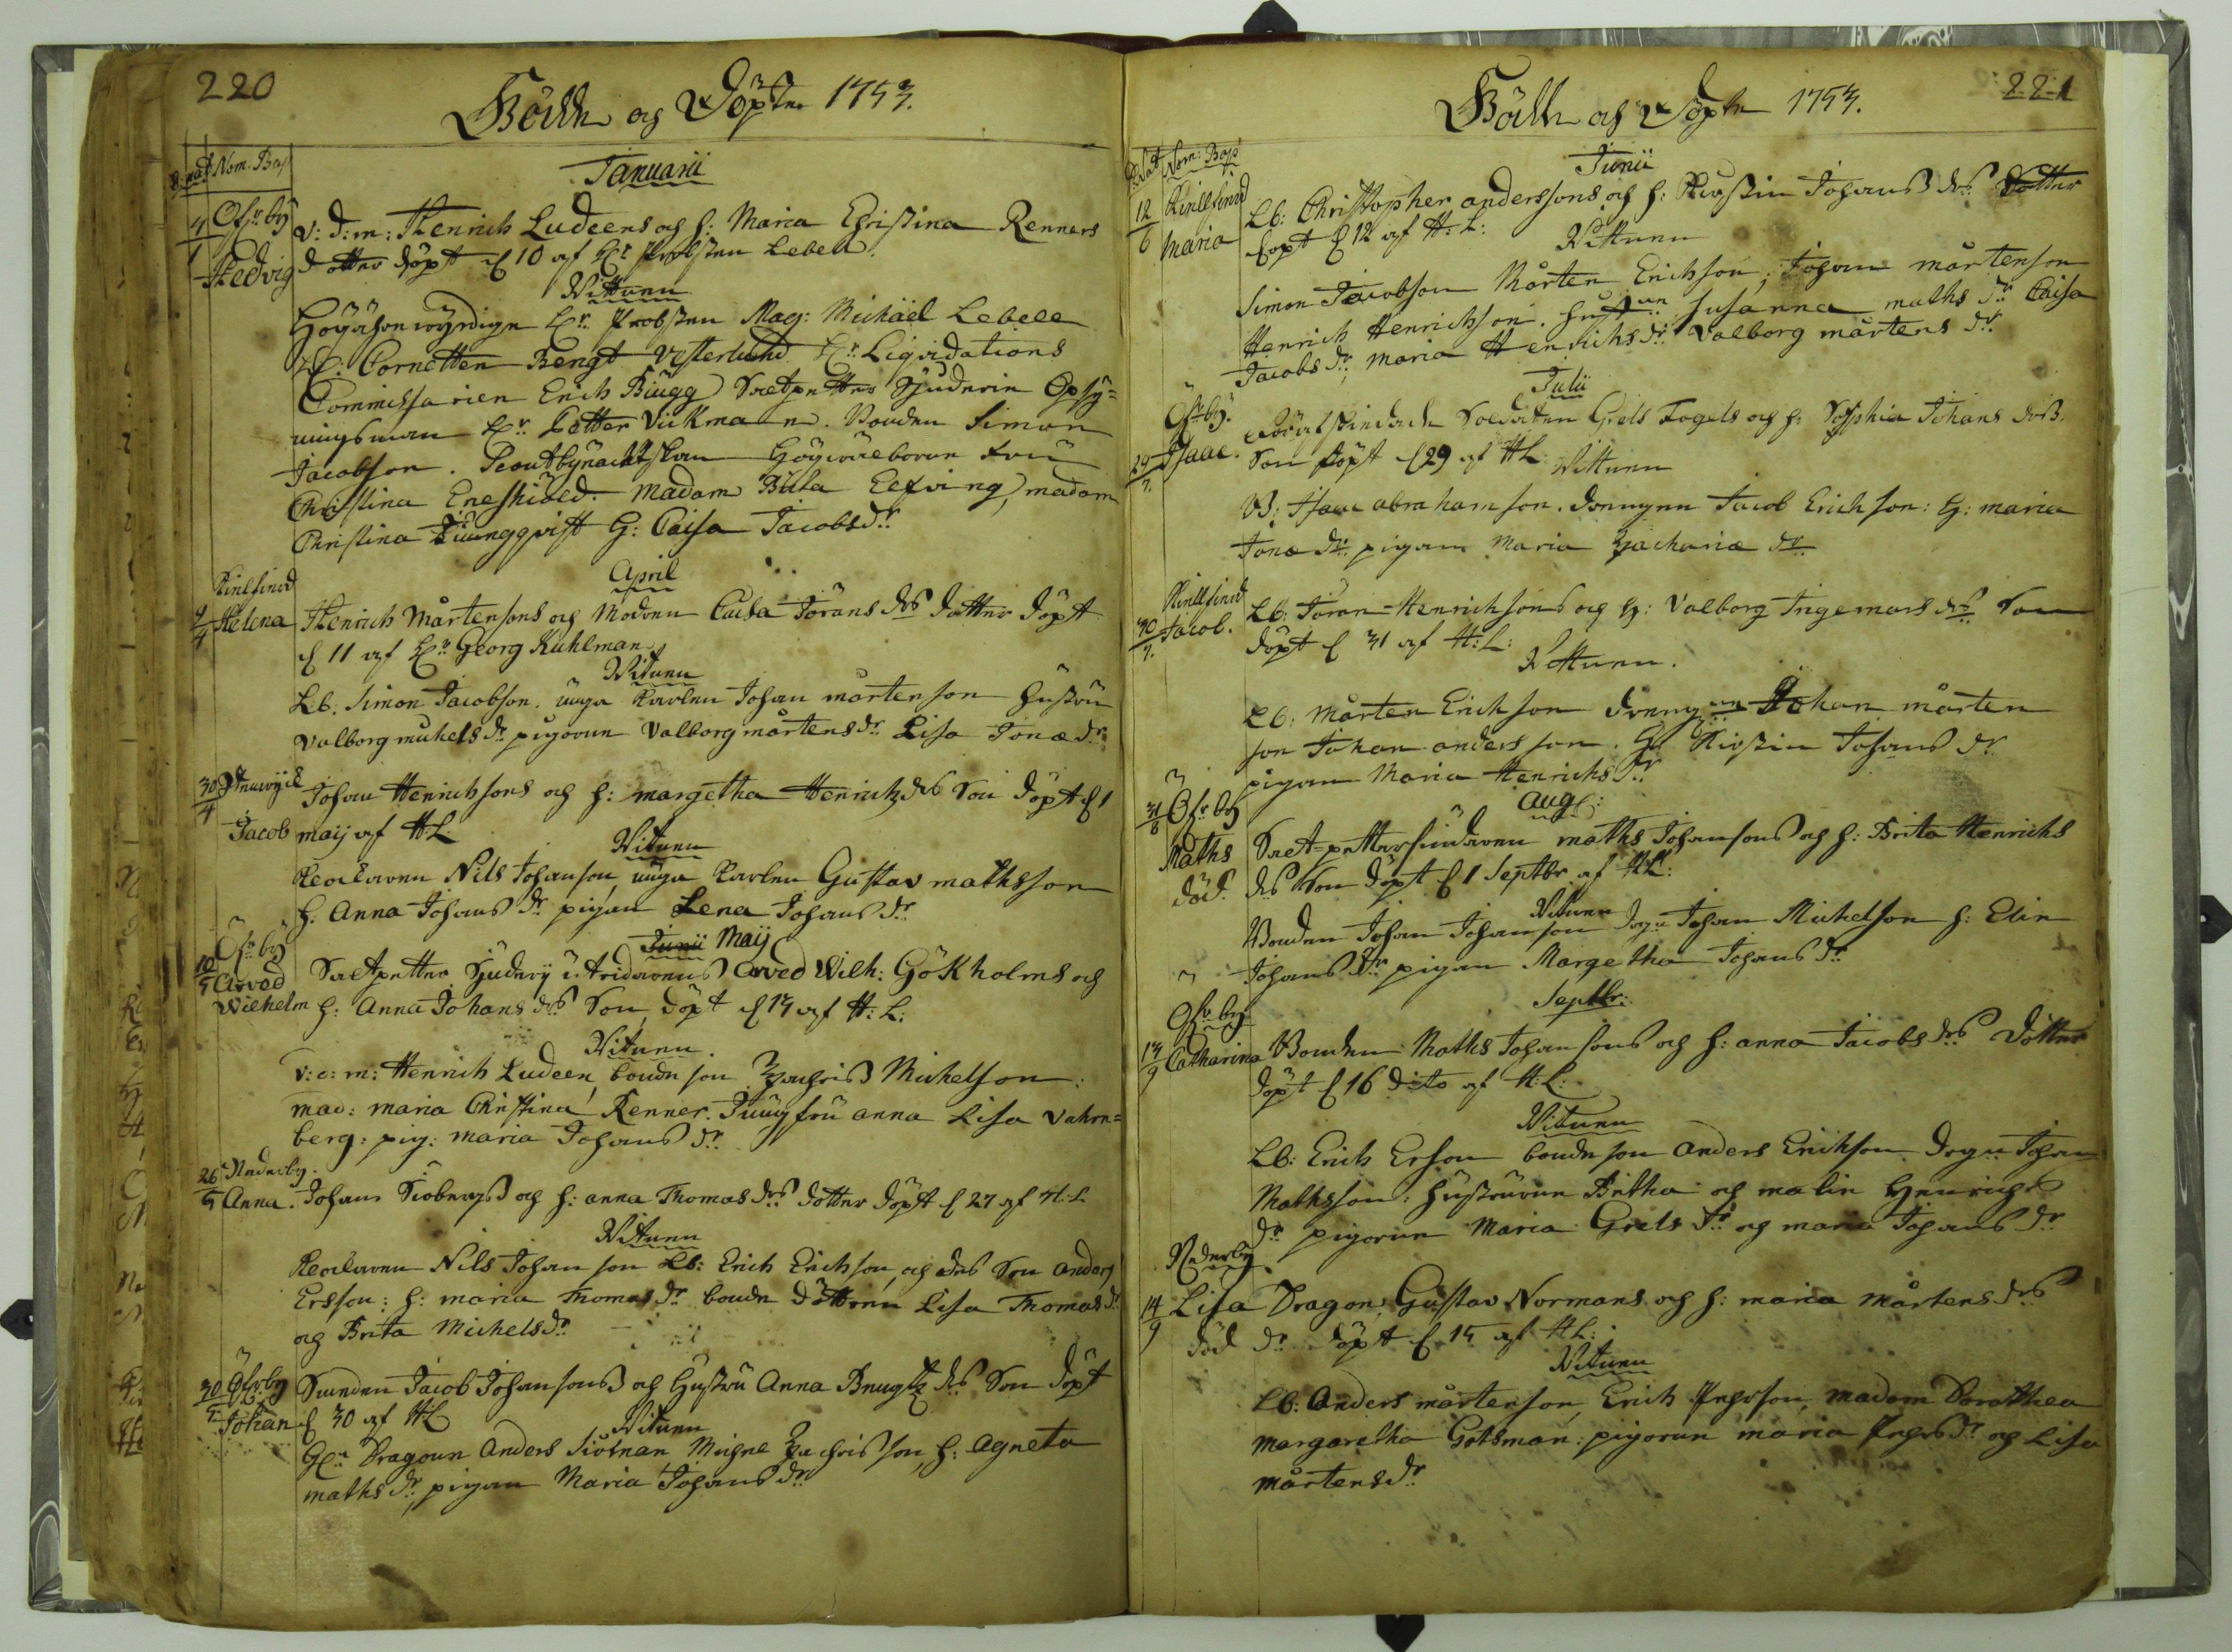 220
Född och Döpter 1753.
D: nat Nom. Bap
Januarii
4/1 Öfrby Hedvig
V: D: m: Henrich Ludeens och h: Maria Christina Renners
dotter döpt d 10 af Hr Probsten Lebell.
Vittnen
Högährewyrdige Hr Probsten Mag: Michäel Lebell
Hr: Cornetten Bengt Vesterlund Hr Liqvidations
Commissarien Erich Biugg Saltpetter Sjuderie Opsy=
ningsman Hr Petter Vikman. Bonden Simon
Jacobson. Högwälborne Fru
Christina Eneskiöld. Madam Brita Elfving, madam
Christina Liungqvist H: Caisa Jacobsdr
April
9/4 Helena
Henrich Mårtensons och Modren Caisa Jörans drs dotter döpt
d 11 af Hr Georg Kuhlman
Vitnen
Lb. Simon Jacobson. unga Karlen Johan mårtenson hustru
Valborg michelsdr pigorne Valborg mårtensdr Lisa Jonædr
30/4 Jacob
Johan Henrichsons och h: margetha Henrichz drs Son döpt d 1
maij af H.L.
Vitnen
Nils Johanson, unga Karlen Gustav mathsson
h. Anna Johans dr pigan Lena Johans dr
Junii Maij
10/5 Öfrby Arved Wilhelm
Saltpetter Sjuderij Arved Wilh: Gökholms och
h: Anna Johans drs Son, döpt d 13 af H: L:
Vitnen.
v: d: m: Henrich Ludeen, bonde son Zachris Michelson:
mad: maria Christina Renner. Jungfru anna Lisa Vahrn=
berg: pig: maria Johans dr
26/5 Nederby. Anna.
Johan Siöbergs och h: anna Thomas drs dotter döpt d 27 af H.L
Vitnen
Nils Johan son Lb: Erich Erichson, och des Son anders
Ersson: h: maria Thomas dr bonde döttren Lisa Thomas dr
och Brita Michels dr
30/5 Öfrby Johan
Jacob Johansons och Hustru Anna Bengtz drs Son döpt
d 30 af HL
Vitnen
Dragoun Anders Siöman, Zachrisson, h: Agneta
maths dr, pigan Maria Johans dr
221
Född och Döpte 1753.
D: Nat Nom: Bap
Junii
12/6 Maria
Lb: Christopher anderssons och h: Kirstin Johans drs Dotter
döpt d 12 af H: L:
Vittnen
Simon Jacobson Mårten Erichson, Johan mårtenson
Henrich Henrichson. hustrun Susanna maths dr Caisa
Jacobs dr, maria Henrichs dr Valborg mårtens dr
Julii
24/7 Öfrby: Isaac.
Soldaten Grels Fogels och h: Sophia Johans drs.
Son döpt d 29 af HL:
Vittnen
B: Isaac abrahamson. drengen Jacob Erichson: H: maria
Jonæ dr pigan Maria Zachariæ dr
30/7. Jacob.
Lb: Jöran Henrichsons och h: Valborg Ingemars drs Son
döpt d 31 af H: L:
Vittnen.
Lb: Mårten Erichson drengen Johan mårten
son Johan andersson. H: Kirstin Johans dr
pigan Maria Henrichs dr
Aug:
31/8 Öfrby Maths död.
Salt=petter maths Johansons och h: Brita Henrichs
drs Son döpt d 1 Septbr af HL:
Vitnen
Bonden Johan Johanson Johan Michelson h: Elin
Johans dr pigan Margetha Johans dr
Septbr:
13/9 Öfrby Catharina
Bonden Maths Johansons och h: anna Jacobs drs Dotter
döpt d 16 dito af H: L:
Vitnen
Lb: Erich Erson bonde son Anders Erichson Johan
Mathsson: hustrurne Britha och malin Henrichs
dr pigorne Maria Grels dr och maria Johans dr
14/9 Nederby Lisa död
Dragon Gustav Normans och h: maria Mårtens drs
dr döpt d 15 af H.L:
Vitnen
Lb: Anders mårtenson, Erich Pehrson, madam Dorothea
margaretha Gotsman: pigorne maria Pehrs dr och Lisa
mårtensdr